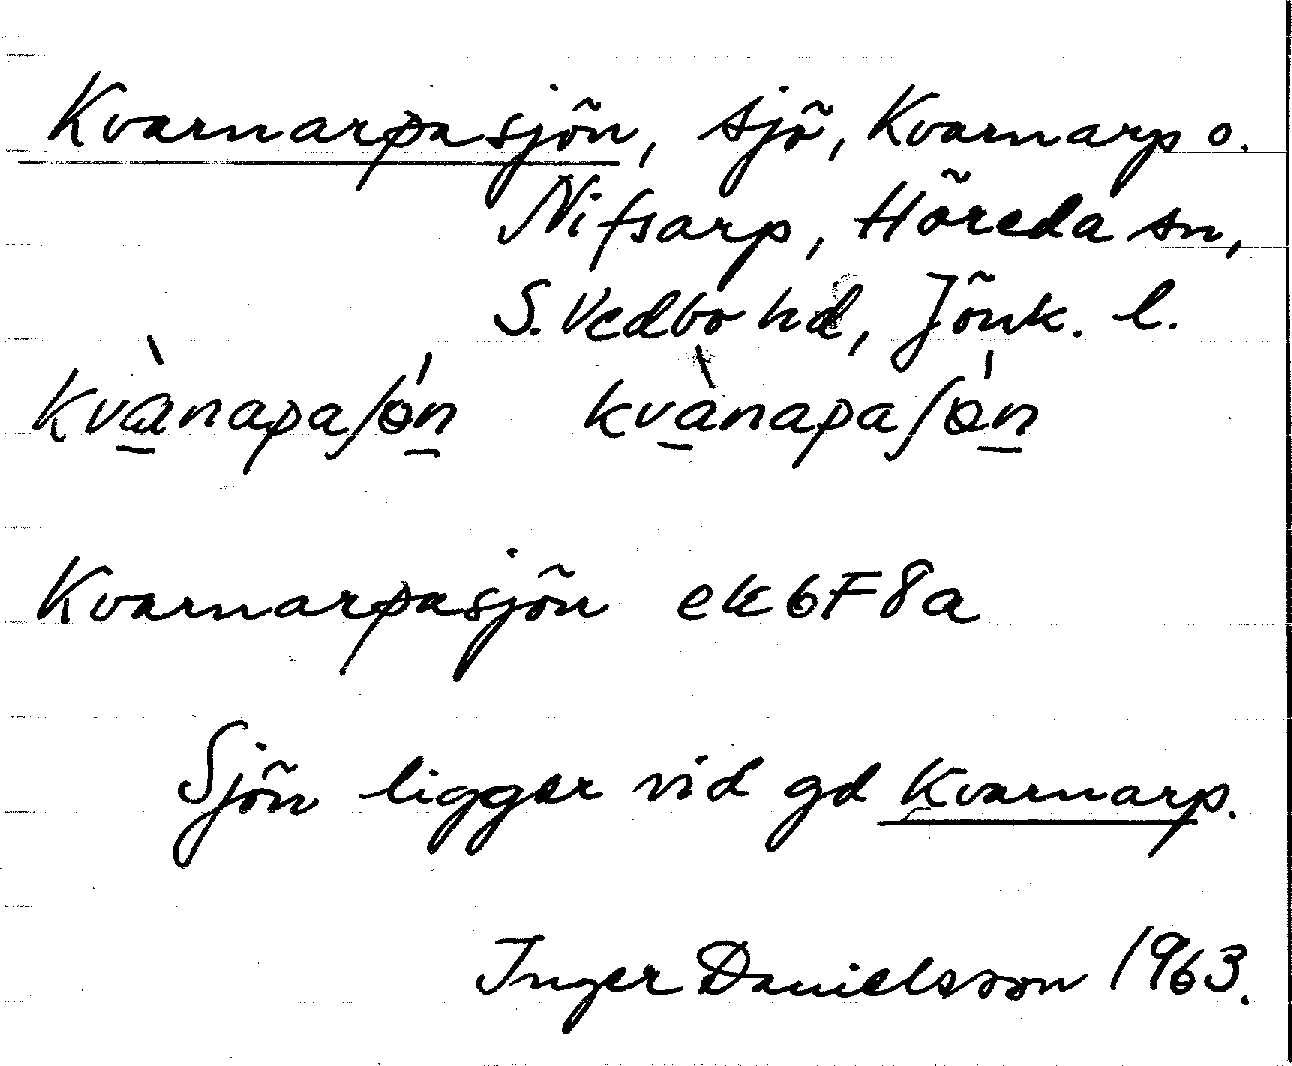 Kvarnarpasjön, sjö, Kvarnarp o.
Nifsarp, Höreda sn,
S. Vedbo hd, Jönk. l.
kvànapaʃɵ́n kvànapaʃɵ́n
Kvarnarpasjön ek6F8a
Sjön ligger vid gd Kvarnarp.
Inger Danielsson 1963.